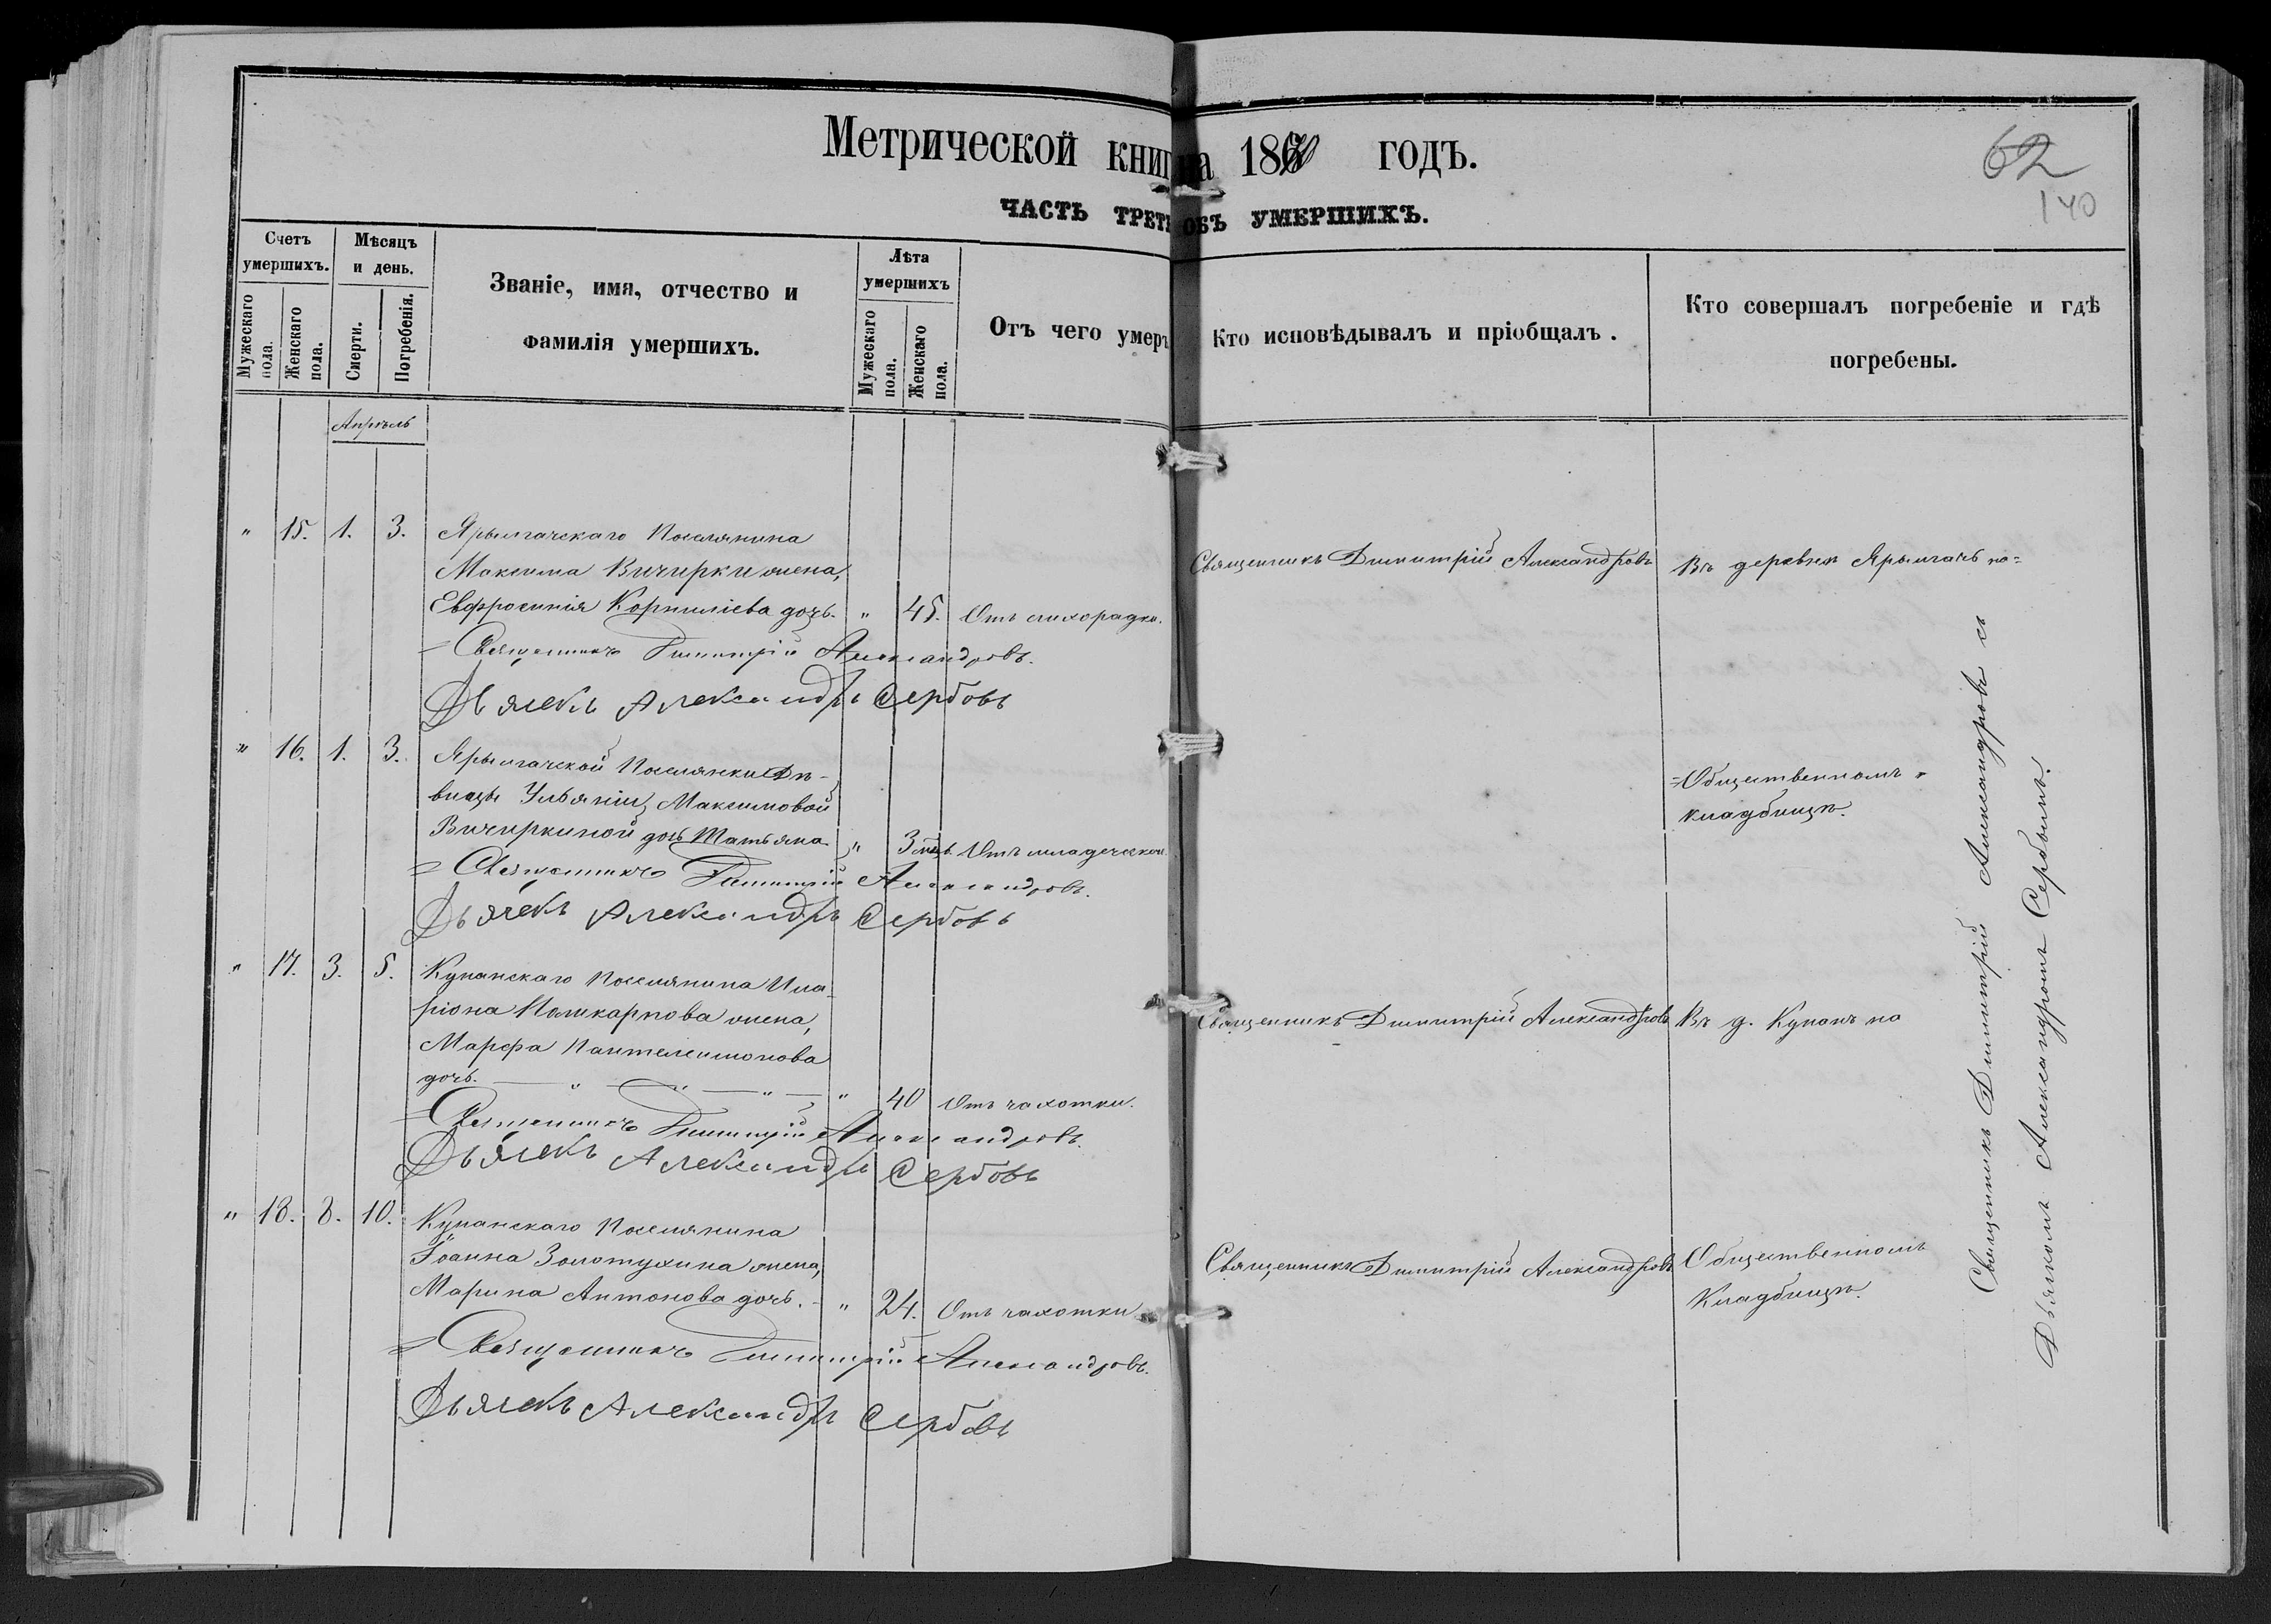 Метрической книг на 1870 годъ.
62
140
ЧАСТЬ ТРЕТЬ ОБЪ УМЕРШИХЪ.
Счетъ умершихъ.
Мужескаго пола.
Женскаго пола.
Мѣсяцъ и день.
Смерти.
Погребенія.
Званіе, имя, отчество и фамилія умершихъ.
Лѣта умершихъ
Мужескаго пола.
Женскаго пола.
Отъ чего умеръ
Кто исповѣдывалъ и пріобщалъ.
Кто совершалъ погребеніе и гдѣ погребены.
Апрѣль
" 15. 1. 3. Ярылгачскаго Поселянина
Максима Вичирки жена,
Евфросинія Корниліева дочь. " 45. Отъ лихорадки.
Священникъ Димитрій Александровъ
Въ деревнѣ Ярылгачъ на=
Священникъ Димитрій Александровъ.
Дьячекъ Александръ Сербовъ
" 16. 1. 3. Ярылгачской Поселянки Дѣ-
вицы Ульяніи Максимовой
Вичиркиной дочь Татьяна " 3 мѣс. Отъ младенческой
=Общественномъ
кладбищѣ.
Священникъ Димитрій Александровъ.
Дьячекъ Александръ Сербовъ
" 17. 3. 5. Кунанскаго Поселянина Ила-
ріона Поликарпова жена,
Марфа Пантелеимонова
дочь. " 40 Отъ чахотки.
Священникъ Димитрій Александровъ
Въ д. Кунанъ на
Священникъ Димитрій Александровъ.
Дьячекъ Александръ Сербовъ
" 18. 8. 10. Кунанскаго Поселянина
Іоанна Золотухина жена,
Марина Антонова дочь. " 24. Отъ чахотки
Священникъ Димитрій Александровъ
Общественномъ
Кладбищѣ.
Священникъ Димитрій Александровъ.
Дьячекъ Александръ Сербовъ
Священникъ Димитрій Александровъ съ
Дьячкомъ Александромъ Сербовымъ.